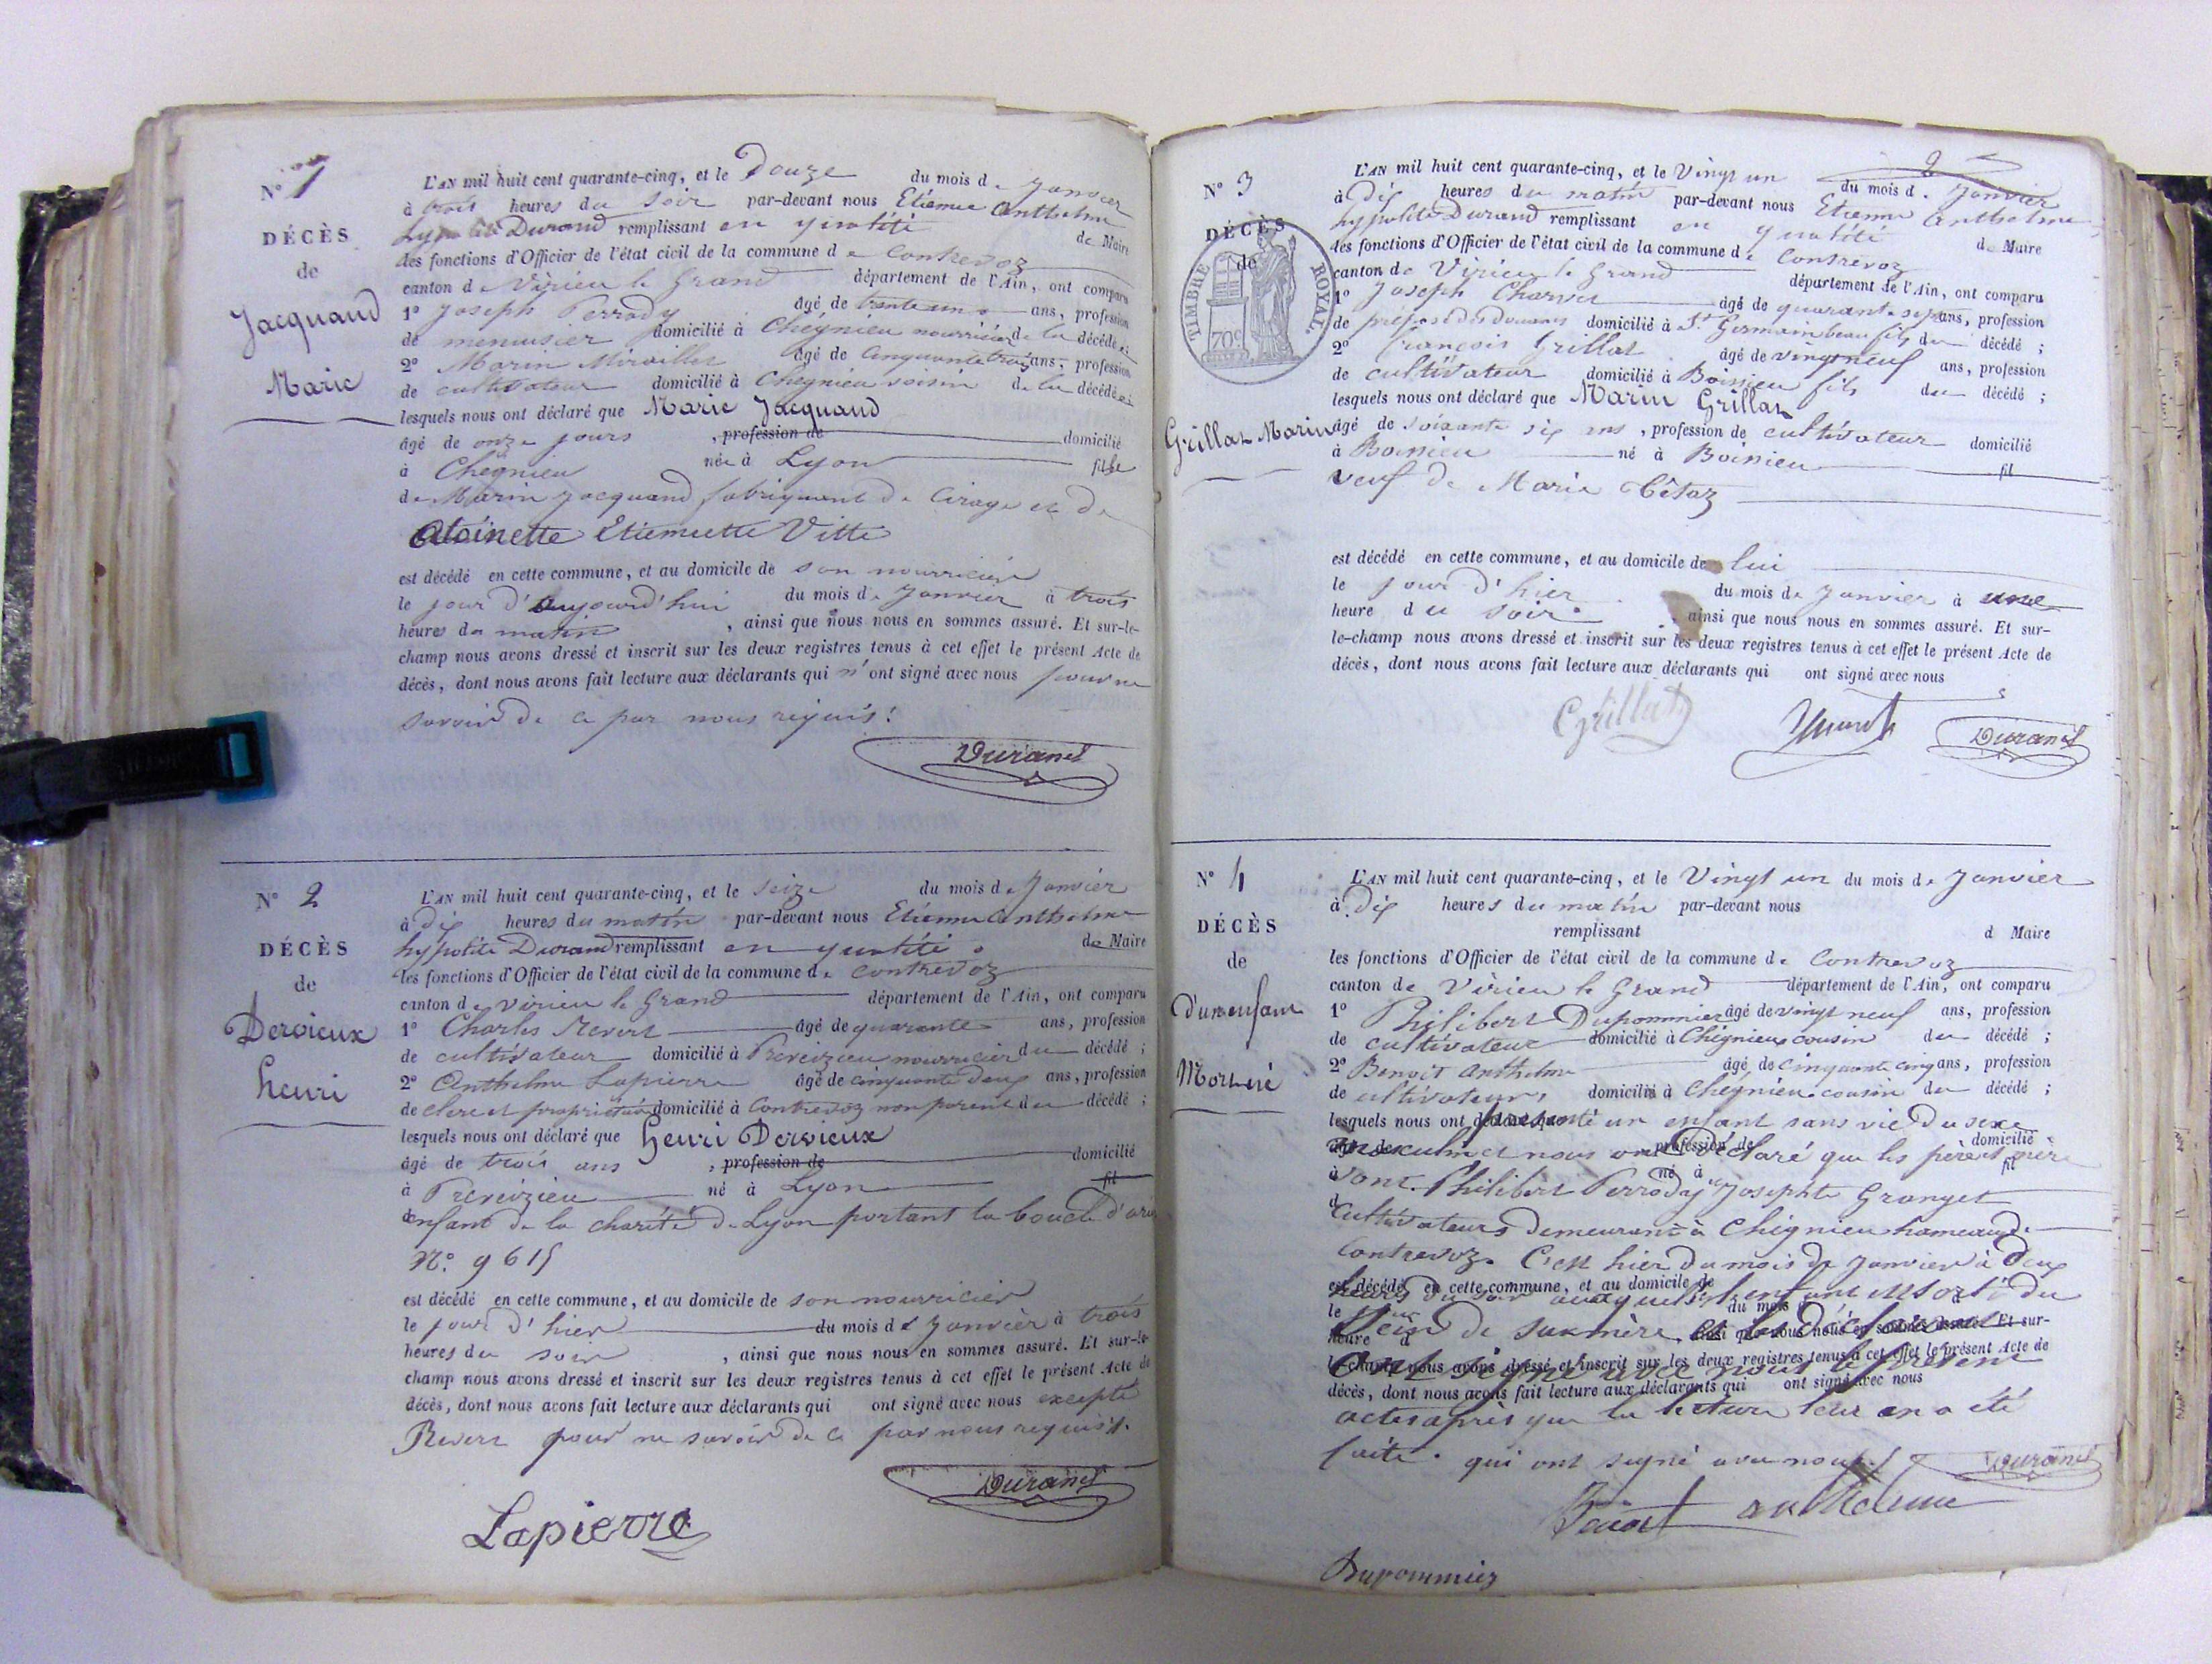 N° 1
DÉCÈS
de
Jacquand
Marie
L'AN mil huit cent quarante-cinq, et le Douze du mois de Janvier
à trois heures du soir par-devant nous Etienne Anthelme
hypolite Durand remplissant en qualité de Maire
les fonctions d'Officier de l'état civil de la commune de Contrevoz
canton de Virieu le Grand département de l'Ain, ont comparu
1° Joseph Perrody âgé de trente un ans, profession
de menuisier domicilié à Chégnieu nourricier de la décédée ;
2° Marin Miraillet âgé de cinquante trois ans, profession
de cultivateur domicilié à Chegnieu voisin de la décédée ;
lesquels nous ont déclaré que Marie Jacquand
âgé de onze jours , profession de domicilié
à Chégnieu née à Lyon fille
de Marin Jacquand fabriquant de Cirage et de
Atoinette Etiennette Vitte
est décédé en cette commune, et au domicile de son nourricier
le jour d'aujourd'hui du mois de Janvier à trois
heures du matin , ainsi que nous nous en sommes assuré. Et sur-le-
champ nous avons dressé et inscrit sur les deux registres tenus à cet effet le présent Acte de
décès, dont nous avons fait lecture aux déclarants qui n'ont signé avec nous pour ne
savoir de ce par nous requis.
Durand
N° 2
DÉCÈS
de
Dervieux
henri
L'AN mil huit cent quarante-cinq, et le seize du mois de Janvier
à dix heures du matin par-devant nous Etienne Anthelme
hypolite Durand remplissant en qualité de Maire
les fonctions d'Officier de l'état civil de la commune de Contrevoz
canton de Virieu le Grand département de l'Ain, ont comparu
1° Charles Revert âgé de quarante ans, profession
de cultivateur domicilié à Preveizieu nourricier du décédé ;
2° Anthelme Lapierre âgé de cinquante deux ans, profession
de clerc et propriétaire domicilié à Contrevoz non parent du décédé ;
lesquels nous ont déclaré que henri Dervieux
âgé de trois ans , profession de domicilié
à Preveizieu né à Lyon fil
enfant de la charité de Lyon portant la boucle d'
N° 9615
est décédé en cette commune, et au domicile de son nourricier
le jour d'hier du mois de Janvier à trois
heures du soir , ainsi que nous nous en sommes assuré. Et sur-le-
champ nous avons dressé et inscrit sur les deux registres tenus à cet effet le présent Acte de
décès, dont nous avons fait lecture aux déclarants qui ont signé avec nous excepté
Revert pour ne savoir de ce par nous requis.
Durand
Lapierre
2
N° 3
DÉCÈS
de
TIMBRE ROYAL
70c
Grillat Marin
L'AN mil huit cent quarante-cinq, et le Vingt un du mois de Janvier
à dix heures du matin par-devant nous Etienne Anthelme
hyppolite Durand remplissant en qualité de Maire
les fonctions d'Officier de l'état civil de la commune de Contrevoz
canton de Virieu le Grand département de l'Ain, ont comparu
1° Joseph Charvet âgé de quarante sept ans, profession
de préposé des douanes domicilié à St Germain beau fils du décédé ;
2° François Grillat âgé de vingt neuf ans, profession
de cultivateur domicilié à Boissieu fils du décédé ;
lesquels nous ont déclaré que Marin Grillat
âgé de soixante six ans , profession de cultivateur domicilié
à Boissieu né à Boissieu fil
veuf de Marie Bétaz
est décédé en cette commune, et au domicile de lui
le jour d'hier du mois de Janvier à une
heure du soir , ainsi que nous nous en sommes assuré. Et sur-
le-champ nous avons dressé et inscrit sur les deux registres tenus à cet effet le présent Acte de
décès, dont nous avons fait lecture aux déclarants qui ont signé avec nous
Grillat Durand
N° 4
DÉCÈS
de
D'un enfant
Mort né
L'AN mil huit cent quarante-cinq, et le Vingt un du mois de Janvier
à Dix heures du matin par-devant nous
remplissant d Maire
les fonctions d'Officier de l'état civil de la commune de Contrevoz
canton de Virieu le Grand département de l'Ain, ont comparu
1° Philibert Dupommier âgé de vingt neuf ans, profession
de cultivateur domicilié à Chégnieu cousin du décédé ;
2° Benoit Anthelme âgé de cinquante cinq ans, profession
de cultivateur, domicilié à Chégnieu cousin du décédé ;
lesquels nous ont présenté un enfant sans vie du sexe
masculin et nous ont déclaré que les père et mère
sont Philibert Perrody et Josephte Granget
cultivateurs demeurant à Chégnieu hameau de
Contrevoz. C'est hier du mois de Janvier à deux
heures du soir auxquelles l'enfant est sorti du
sein de sa mère et les déclarants
ont signé avec nous le présent
acte après que la lecture leur en a été
faite. qui ont signé avec nous
Durand
Benoit anthelme
Dupommier